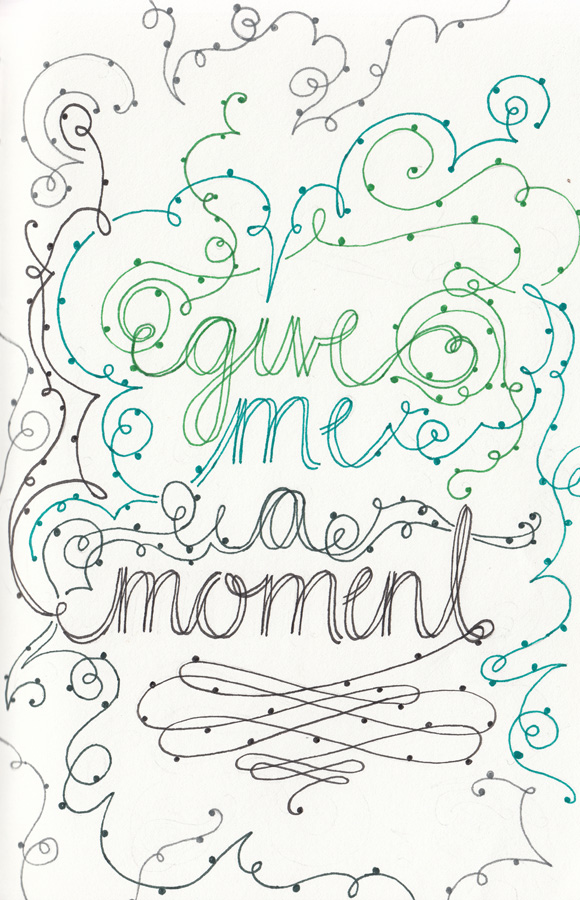 give
me
a
moment